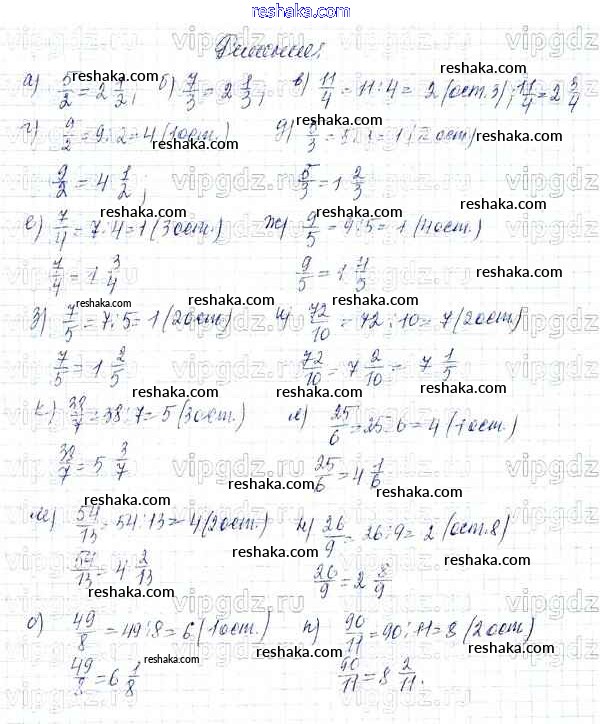 reshaka.com
Решение:
а) 5/2 = 2 1/2; б) 7/3 = 2 1/3; в) 11/4 = 11:4 = 2 (ост.3); 11/4 = 2 3/4
г) 9/2 = 9:2 = 4 (1 ост.) д) 5/3 = 5:3 = 1 (2 ост)
9/2 = 4 1/2; 5/3 = 1 2/3
е) 7/4 = 7:4 = 1 (3 ост.) ж) 9/5 = 9:5 = 1 (4 ост.)
7/4 = 1 3/4 9/5 = 1 4/5
з) 7/5 = 7:5 = 1 (2 ост) и) 72/10 = 72:10 = 7 (2 ост.)
7/5 = 1 2/5 72/10 = 7 2/10 = 7 1/5
к) 38/7 = 38:7 = 5 (3 ост.) л) 25/6 = 25:6 = 4 (1 ост.)
38/7 = 5 3/7 25/6 = 4 1/6
м) 54/13 = 54:13 = 4 (2 ост.) н) 26/9 = 26:9 = 2 (ост.8)
54/13 = 4 2/13 26/9 = 2 8/9
о) 49/8 = 49:8 = 6 (1 ост.) п) 90/11 = 90:11 = 8 (2 ост)
49/8 = 6 1/8 90/11 = 8 2/11.